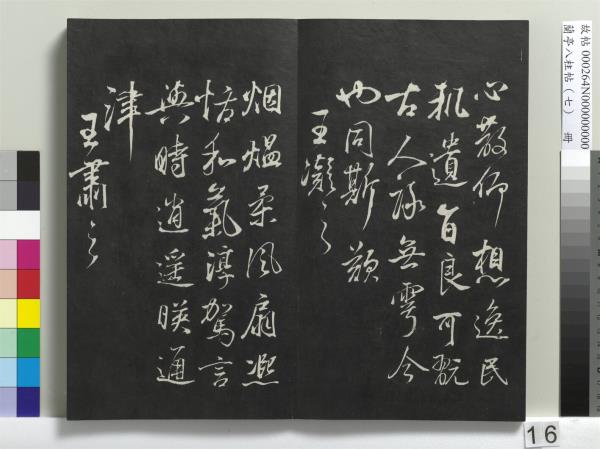 故帖 000264N000000000
蘭亭八柱帖（七） 冊
心散仰想逸民
軌遺音良可翫
古人詠無雩今
也同斯歎
王凝之
烟熅柔風扇熈
怡和氣淳駕言
興時逍遥暎通
津
王肅之
16